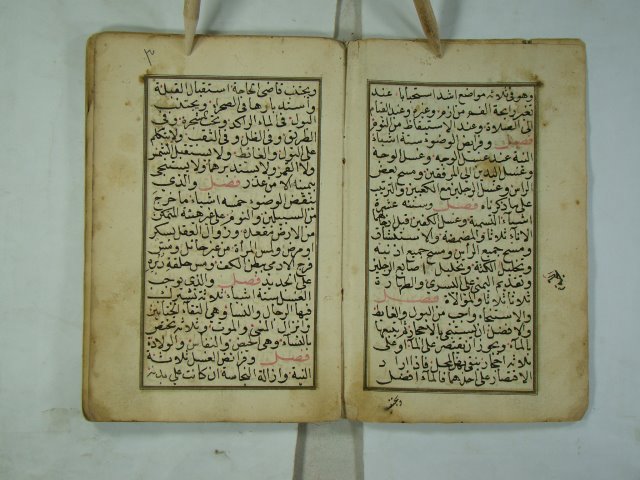 وهو في ثلاثة مواضع اشد استحبابا عند
تغير رائحة الفم من ازم وغيره وعند القيام
الى الصلاة وعند الاستيقاظ من النوم
فصل وفرائض الوضوء ستة اشياء
النية عند غسل الوجه وغسل الوجه
وغسل اليدين الى المرفقين ومسح بعض
الراس وغسل الرجلين مع الكعبين والترتيب
على ما ذكرناه فصل وسننه عشرة
اشياء التسمية وغسل الكفين قبل ادخالهما
الاناء ثلاثا والمضمضة والاستنشاق
ومسح جميع الراس ومسح جميع اذنيه
وتخليل اللحية الكثة وتخليل اصابع الرجلين
وتقديم اليمنى على اليسرى والطهارة
ثلاثا ثلاثا والموالاة فصل
والاستنجاء واجب من البول والغائط
والافضل ان يستنجي بالاحجار ثم يتبعها
بالماء ويجوز ان يقتصر على الماء او على
ثلاثة احجار ينقي بهن المحل فاذا اراد
الاقتصار على احدهما فالماء افضل
ويجتنب
٣
ويجتنب قاضي الحاجة استقبال القبلة
واستدبارها في الصحراء ويجتنب
البول في الماء الراكد وتحت الشجرة وفي
الطريق وفي الظل وفي الثقب ولا يتكلم
على البول والغائط ولا يستقبل الشمس
ولا القمر ولا يستدبرهما ولا يستنجي
بيمينه الا من عذر فصل والذي
ينقض الوضوء خمسة اشياء ما خرج
من السبيلين والنوم على غير هيئة المتمكن
من الارض بمقعده وزوال العقل بسكر
او مرض ولمس المراة من غير حائل ومس
فرج الادمي ببطن الكف ومس حلقة دبره
على الجديد فصل والذي يوجب
الغسل ستة اشياء ثلاثة تشترك
فيها الرجال والنساء وهي التقاء الختانين
وانزال المني والموت وثلاثة تختص
بالنساء وهي الحيض والنفاس والولادة
فصل وفرائض الغسل ثلاثة
النية وازالة النجاسة ان كانت على بدنه